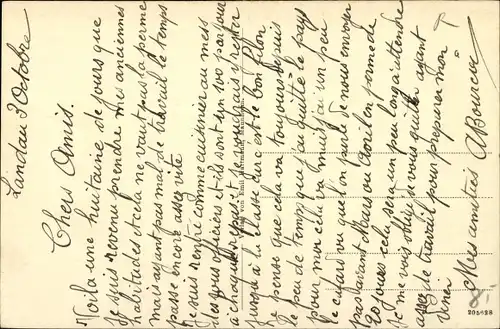 Landau 3 Octobre
Chers Amis.
Voila une huitaine de jours que
je suis revenu prendre mes anciennes
habitudes et cela ne vaut pas la perme
mais ayant pas mal de travail le temps
passe encore assez vite
je suis rentré comme cuisinier au mess
des sous officiers et ils sont 150 par jour
à chaque repas je souhaiterais y rester
jusqu'à la classe car c'est le bon filon
je pense que cela va toujours depuis
le peu de temps que j'ai quitté le pays
pour moi cela va mais j'ai un peu
le cafard vu que l'on parle de nous envoyer
pas avant Mars ou Avril en perme de
20 jours cela sera un peu long à attendre
je me vois obligé de vous quitter ayant
assez de travail pour préparer mon
diner
Mes amitiés ABourcier
Verlag von Emil
205488
8.-